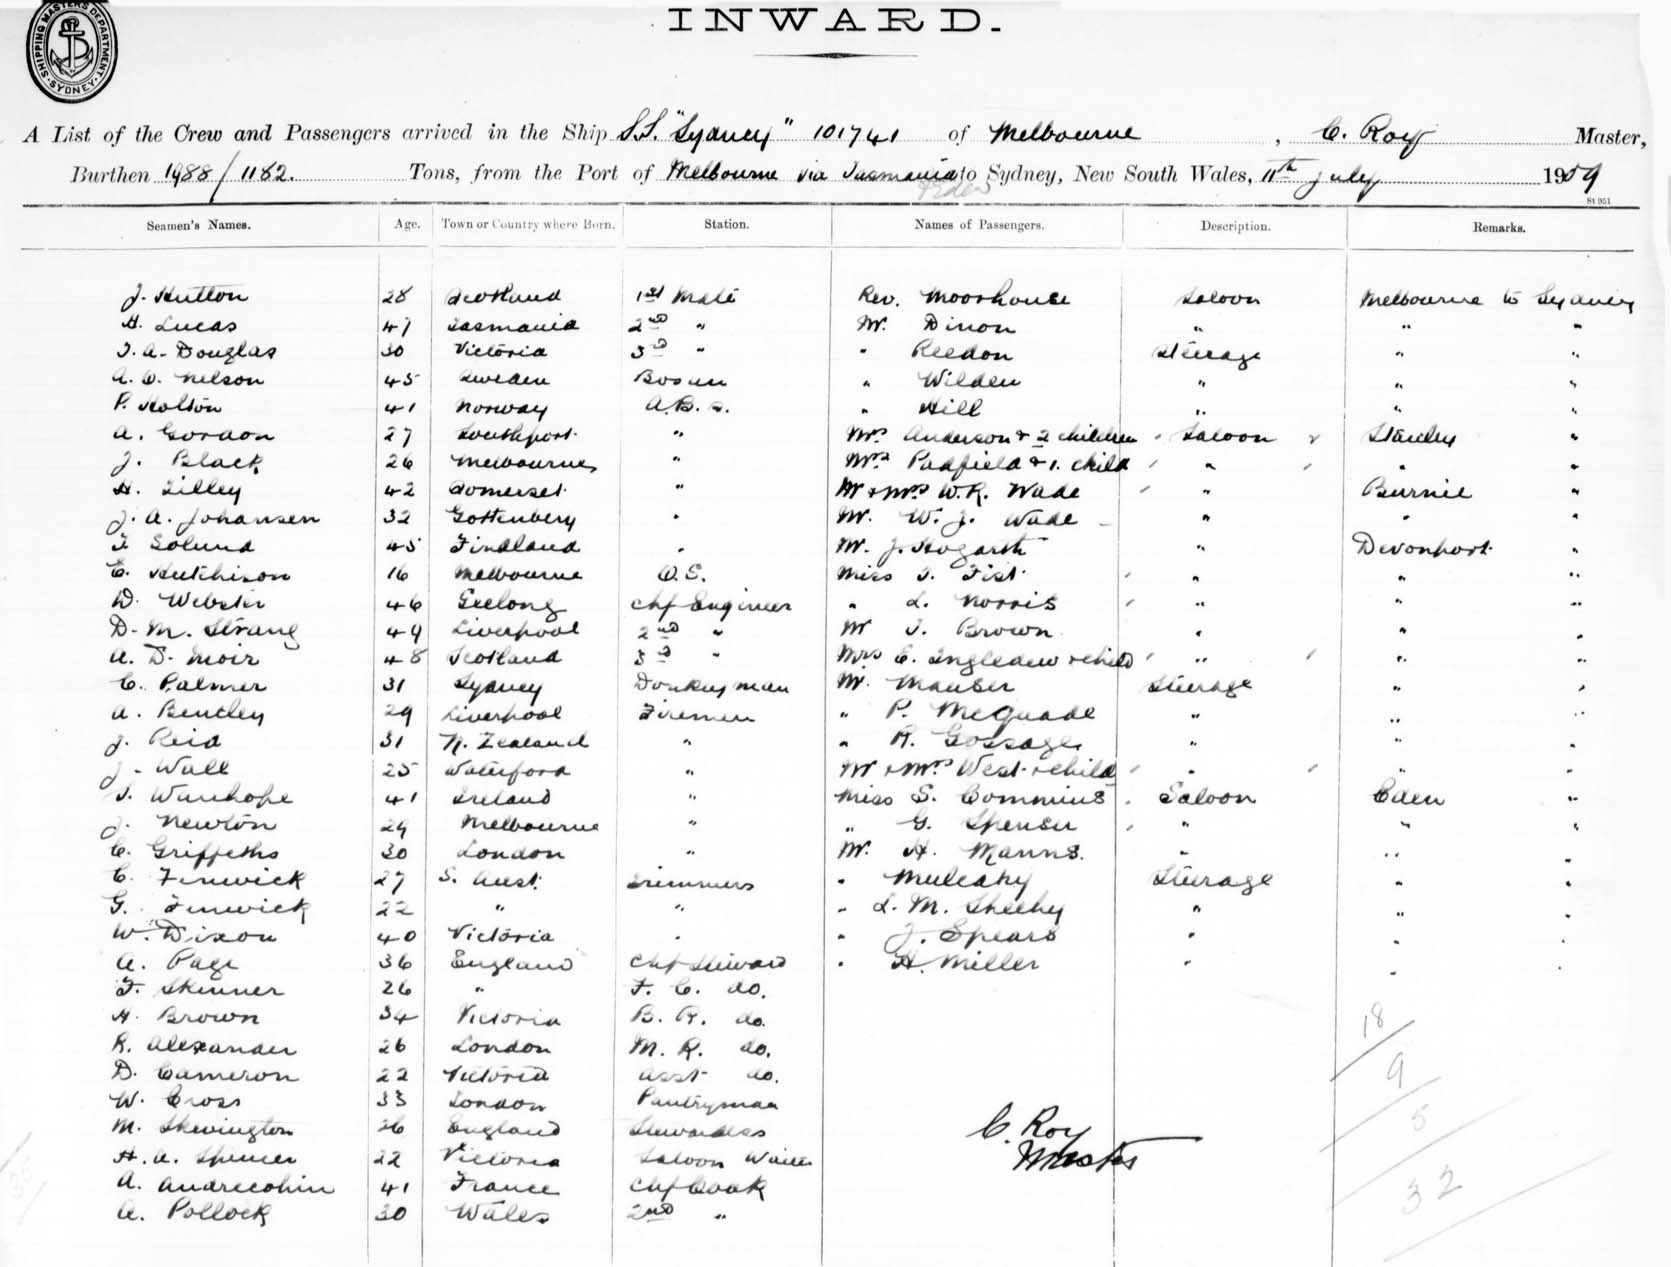 SHIPPING MASTERS DEPARTMENT
SYDNEY
INWARD.
A List of the Crew and Passengers arrived in the Ship S.S. "Sydney" 101741 of Melbourne, C. Roy Master,
Burthen 1988/1182. Tons, from the Port of Melbourne via Tasmania to Sydney, New South Wales, 11th July 1909
& Eden
St 951
Seamen's Names. Age. Town or Country where Born. Station. Names of Passengers. Description. Remarks.
J. Hutton 28 Scotland 1st Mate Rev. Moorhouse Saloon Melbourne to Sydney
H. Lucas 47 Tasmania 2nd " Mr. Dixon " " "
J. A. Douglas 30 Victoria 3rd " " Reedon Steerage " "
A. O. Nelson 45 Sweden Bosun " Wilden " " "
P. Holton 41 Norway A.B.s. " Hill " " "
A. Gordon 27 Southport " Mrs Anderson & 2 children Saloon Stanley "
J. Black 26 Melbourne " Mrs Padfield & 1. child " " "
H. Tilley 42 Somerset " Mr & Mrs W.R. Wade " Burnie "
J. A. Johansen 32 Gottenberg " Mr. W. J. Wade " " "
T. Solund 45 Findland " Mr. J. Hogarth " Devonport "
E. Hutchison 16 Melbourne O.S. Miss T. Fist " " "
D. Webster 46 Geelong Chf Engineer " L. Norris " " "
D. M. Strang 49 Liverpool 2nd " Mr T. Brown " " "
A. D. Moir 48 Scotland 3rd " Mrs E. Ingledew & child " " "
C. Palmer 31 Sydney Donkeyman Mr. Manser Steerage " "
A. Bentley 29 Liverpool Firemen " P. McQuade " " "
J. Reid 31 N. Zealand " " R. Gossage " " "
J. Wall 25 Waterford " Mr & Mrs West & child " " "
J. Wauhope 41 Ireland " Miss S. Commins Saloon Eden "
J. Newton 29 Melbourne " " G. Spenser " " "
C. Griffeths 30 London " Mr. H. Manns. " " "
C. Fenwick 27 S. Aust. Trimmers " Mulcahy Steerage " "
G. Fenwick 22 " " " L. M. Sheehy " " "
W. Dixon 40 Victoria " " J. Spears " " "
A. Page 36 England Chf Steward " H. Miller " " "
F. Skinner 26 " F. C. do.
H. Brown 34 Victoria B. R. do.
R. Alexander 26 London M. R. do.
D. Cameron 22 Victoria Asst do.
W. Cross 33 London Pantryman
M. Skevington 26 England Stewardess
H. A. Spencer 22 Victoria Saloon Waiter
A. Andrecohin 41 France Chf Cook
A. Pollock 30 Wales 2nd "
18
9
5
32
C. Roy
Master